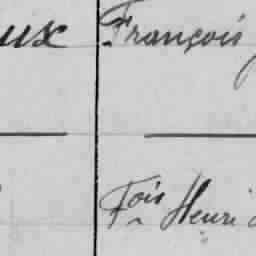 ux François
Fois Henri